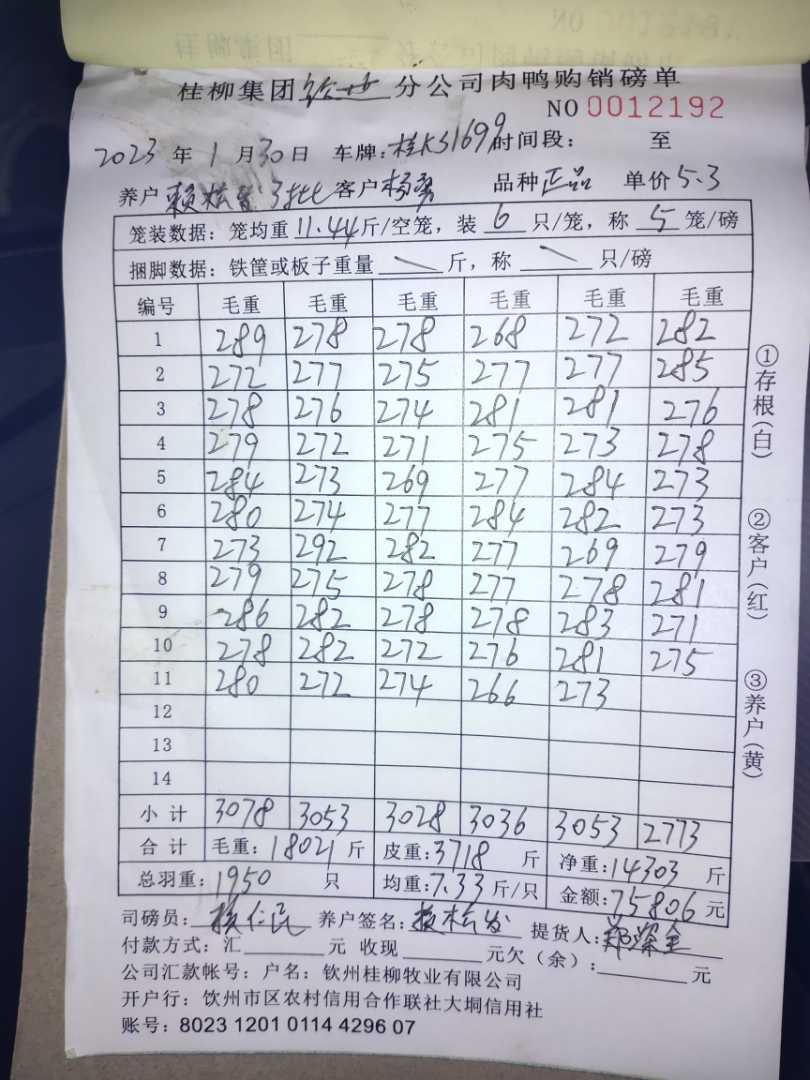 桂柳集团 分公司肉鸭购销磅单
NO 0012192
2023 年 1 月 30 日 车牌:桂KS1699 时间段: 至
养户 赖松发 3批 客户 杨勇 品种 正品 单价 5.3
笼装数据: 笼均重 11.44 斤/空笼, 装 6 只/笼, 称 5 笼/磅
捆脚数据: 铁筐或板子重量 \ 斤, 称 \ 只/磅
编号 毛重 毛重 毛重 毛重 毛重 毛重
1 289 278 278 268 272 282
2 272 277 275 277 277 285
3 278 276 274 281 281 276
4 279 272 271 275 273 278
5 284 273 269 277 284 273
6 280 274 277 284 282 273
7 273 292 282 277 269 279
8 279 275 278 277 278 281
9 286 282 278 278 283 271
10 278 282 272 276 281 275
11 280 272 274 266 273
12
13
14
小计 3078 3053 3028 3036 3053 2773
合计 毛重: 18021 斤 皮重: 3718 斤 净重: 14303 斤
总羽重: 1950 只 均重: 7.33 斤/只 金额: 75806 元
司磅员: 仁民 养户签名: 赖松发 提货人: 郑 全
付款方式: 汇 元 收现 元欠(余): 元
公司汇款帐号: 户名: 钦州桂柳牧业有限公司
开户行: 饮州市区农村信用合作联社大垌信用社
账号: 8023 1201 0114 4296 07
①存根(白)
②客户(红)
③养户(黄)